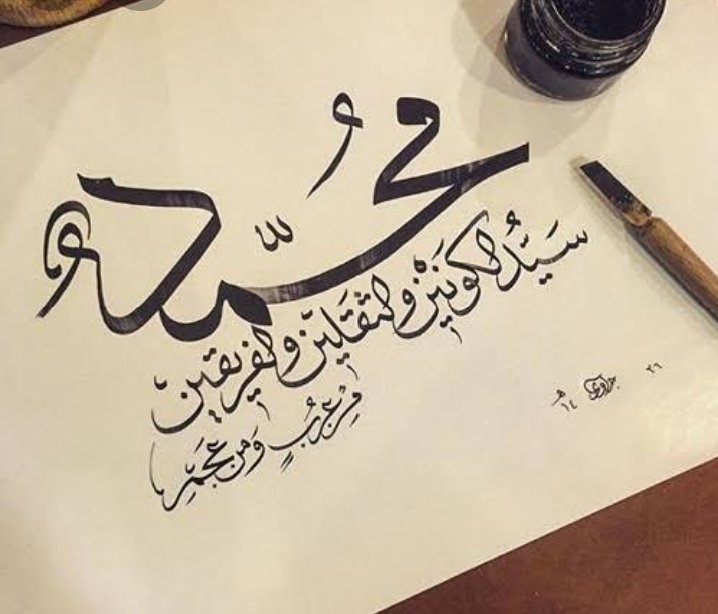 مُحَمَّدٌ
سَيِّدُ الْكَوْنَيْنِ وَالثَّقَلَيْنِ وَالْفَرِيقَيْنِ
مِنْ عُرْبٍ وَمِنْ عَجَمِ